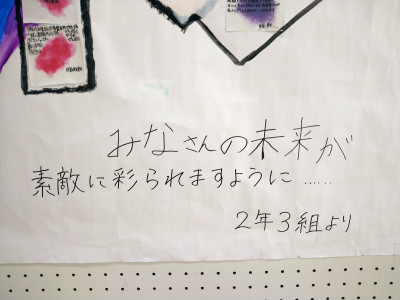 みなさんの未来が
素敵に彩られますように……
2年3組より